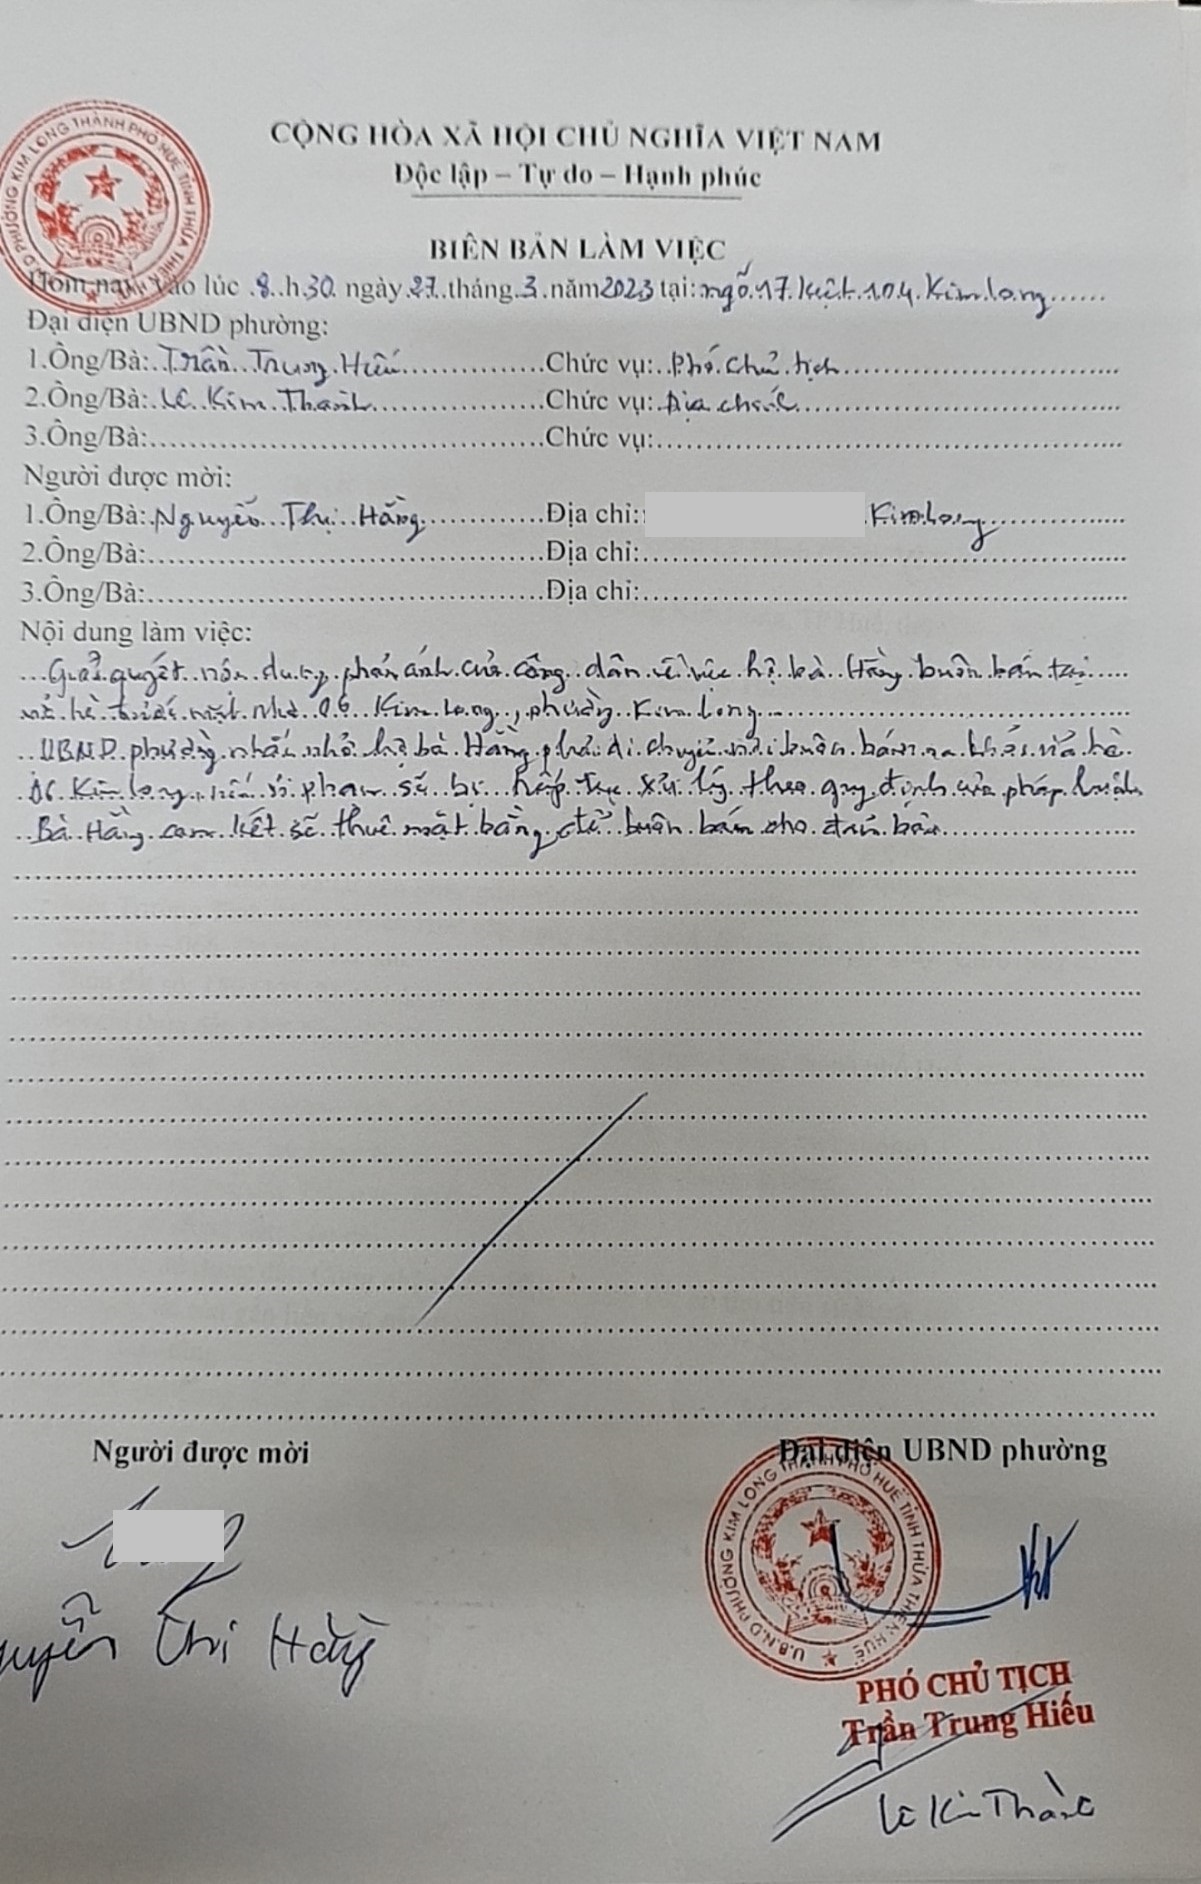 U.B.N.D PHƯỜNG KIM LONG THÀNH PHỐ HUẾ TỈNH THỪA THIÊN HUẾ
CỘNG HÒA XÃ HỘI CHỦ NGHĨA VIỆT NAM
Độc lập – Tự do – Hạnh phúc
BIÊN BẢN LÀM VIỆC
Hôm nay, vào lúc 8 h 30 ngày 27 tháng 3 năm 2023 tại: ngõ 17 kiệt 104 Kim Long
Đại diện UBND phường:
1.Ông/Bà: Trần Trung Hiếu Chức vụ: Phó Chủ tịch
2.Ông/Bà: Lê Kim Thành Chức vụ: Địa chính
3.Ông/Bà: Chức vụ:
Người được mời:
1.Ông/Bà: Nguyễn Thị Hằng Địa chỉ: Kim Long
2.Ông/Bà: Địa chỉ:
3.Ông/Bà: Địa chỉ:
Nội dung làm việc:
Giải quyết nội dung phản ánh của công dân về việc hộ bà Hằng buôn bán tại
vỉa hè trước mặt nhà 06 Kim Long, phường Kim Long
UBND phường nhắc nhở hộ bà Hằng phải di chuyển buôn bán ra khỏi vỉa hè
06 Kim Long, nếu vi phạm sẽ bị tiếp tục xử lý theo quy định của pháp luật
Bà Hằng cam kết sẽ thuê mặt bằng để buôn bán cho đảm bảo
Người được mời Đại diện UBND phường
U.B.N.D PHƯỜNG KIM LONG THÀNH PHỐ HUẾ TỈNH THỪA THIÊN HUẾ
Nguyễn Thị Hằng
PHÓ CHỦ TỊCH
Trần Trung Hiếu
Lê Kim Thành